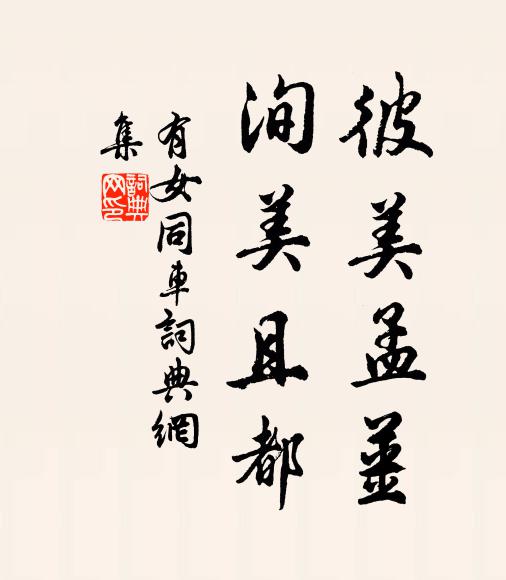 彼美孟薑
洵美且都
有女同車詞典網
集
詞典
网印